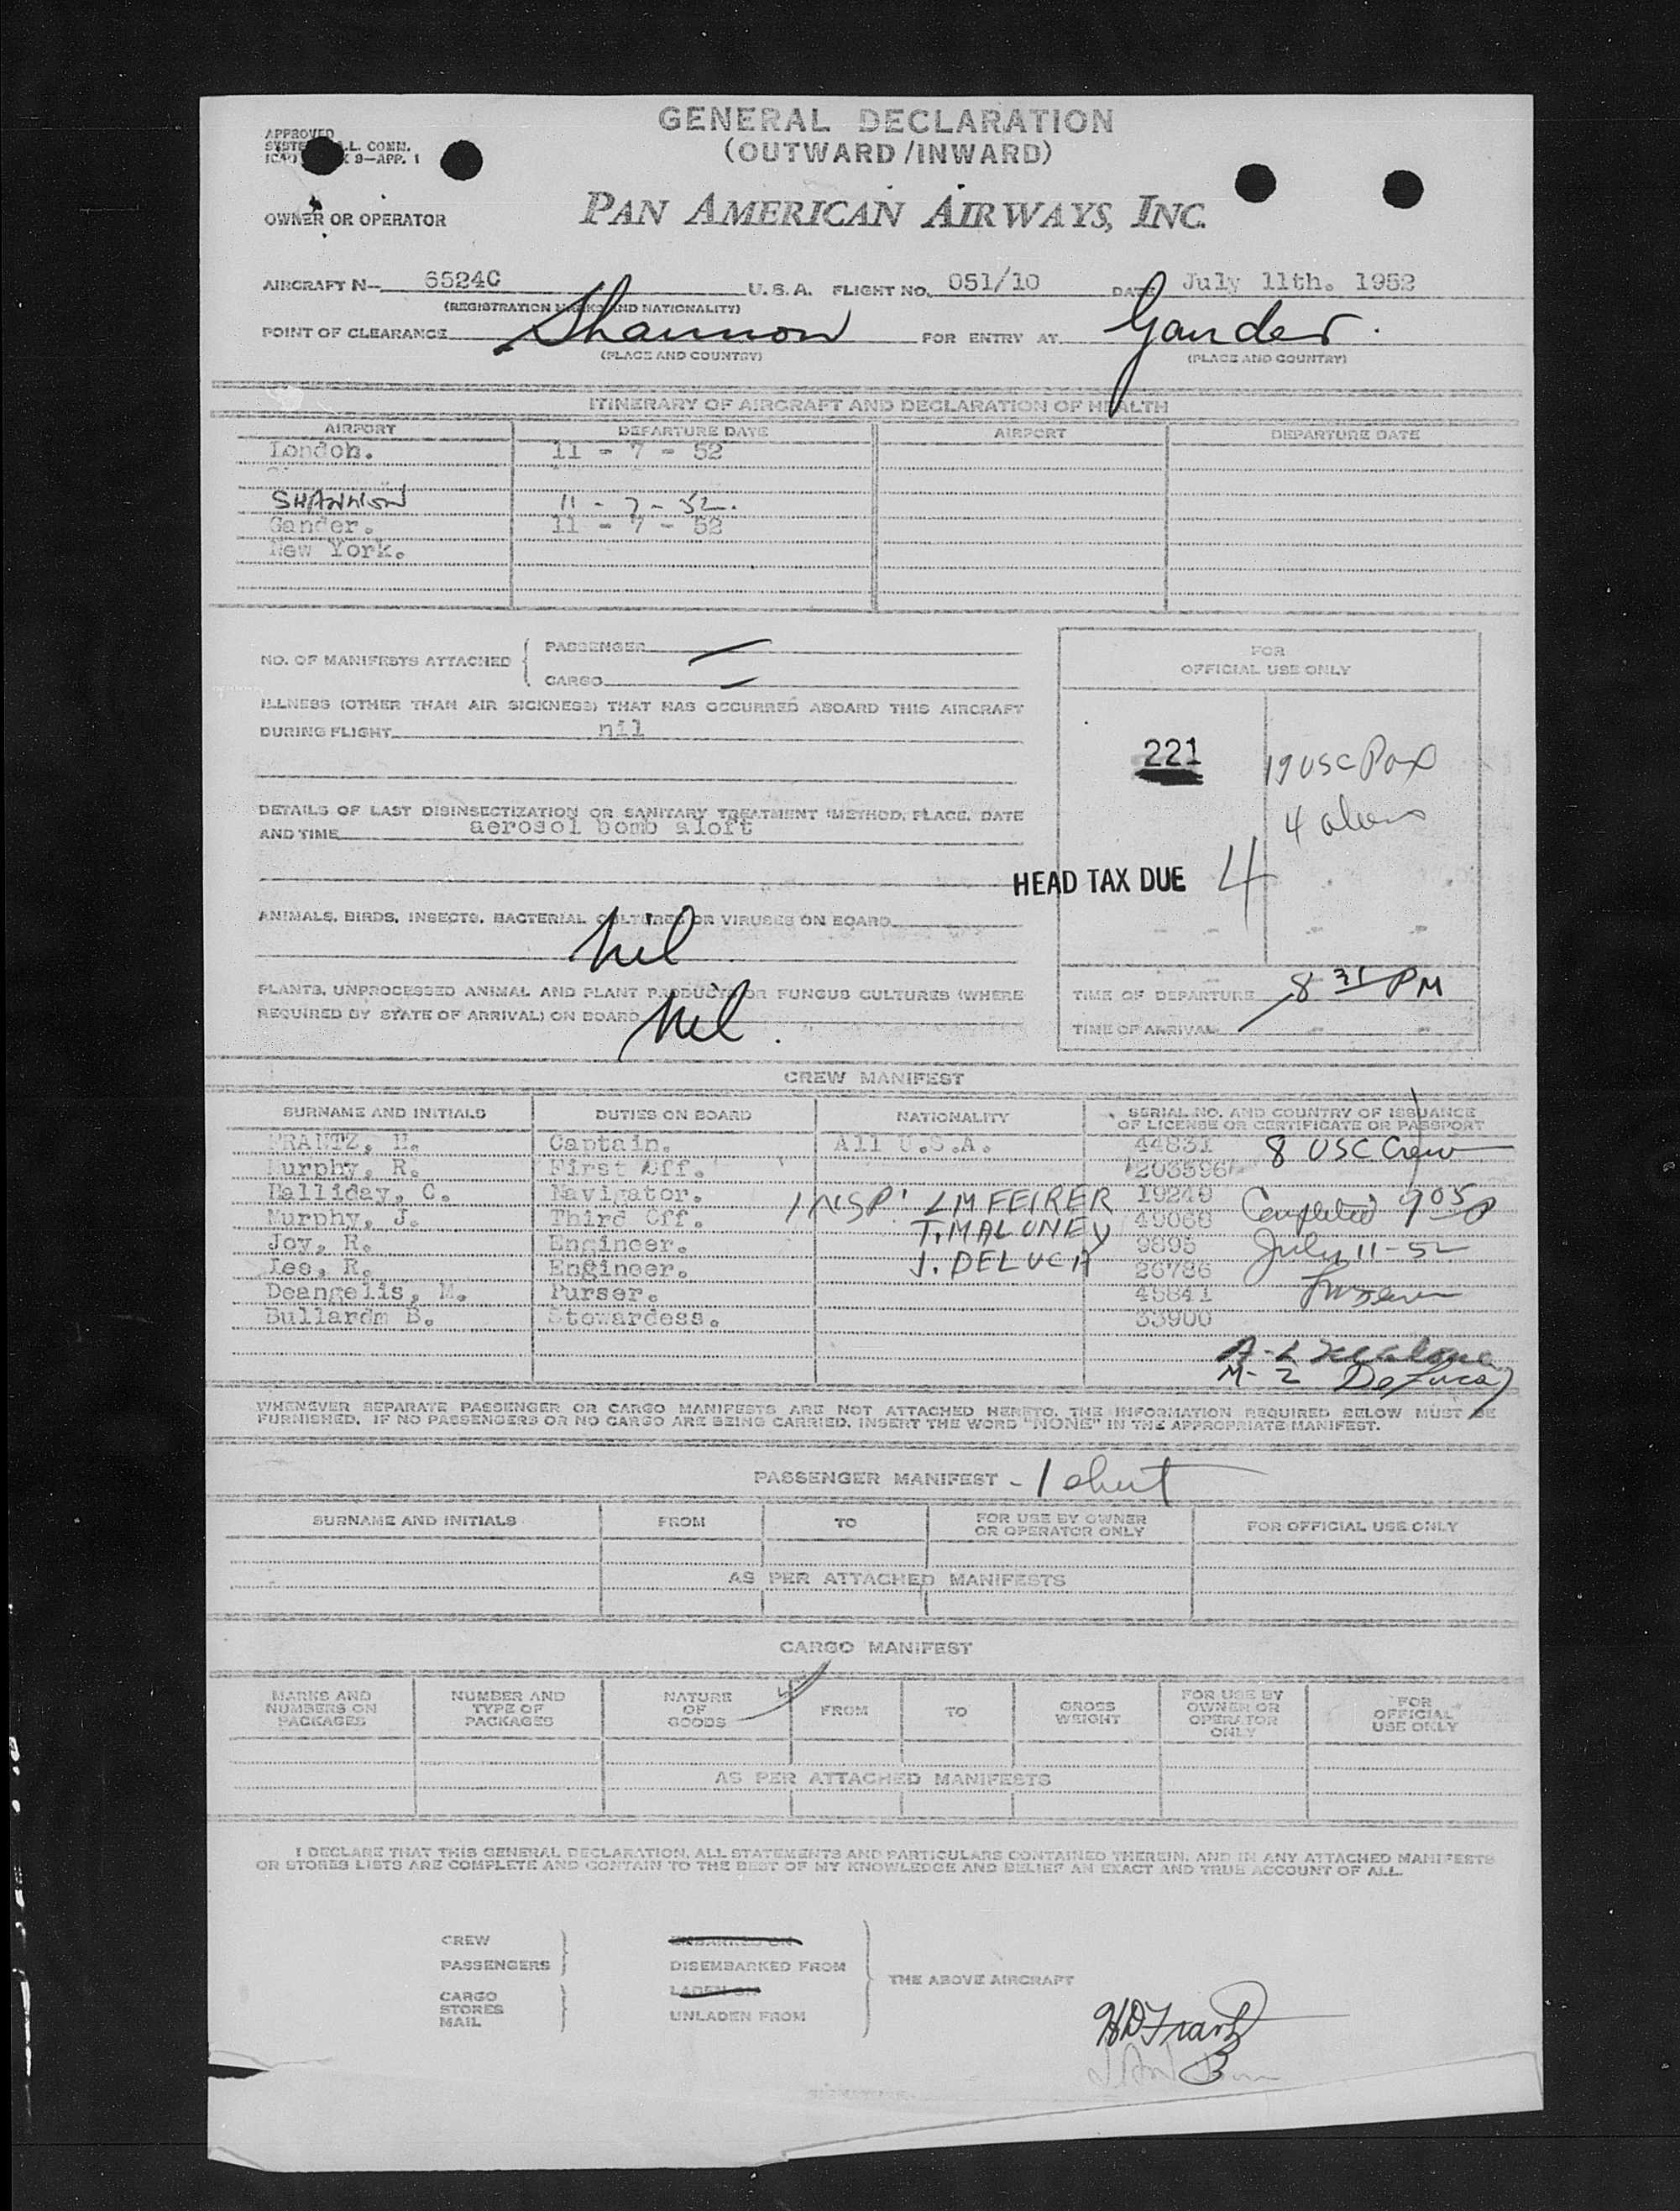 GENERAL DECLARATION
(OUTWARD/INWARD)
APPROVED
L. COMM.
9—APP. 1
OWNER OR OPERATOR
PAN AMERICAN AIRWAYS, INC.
AIRCRAFT N— 6524C U.S.A. FLIGHT NO. 051/10 DATE July 11th. 1952
(REGISTRATION MARKS AND NATIONALITY)
POINT OF CLEARANCE Shannon FOR ENTRY AT Gander.
(PLACE AND COUNTRY) (PLACE AND COUNTRY)
ITINERARY OF AIRCRAFT AND DECLARATION OF HEALTH
AIRPORT DEPARTURE DATE AIRPORT DEPARTURE DATE
London. 11 - 7 - 52
SHANNON 11 - 7 - 52.
Gander. 11 - 7 - 52
New York.
NO. OF MANIFESTS ATTACHED
PASSENGER —
CARGO —
ILLNESS (OTHER THAN AIR SICKNESS) THAT HAS OCCURRED ABOARD THIS AIRCRAFT
DURING FLIGHT nil
DETAILS OF LAST DISINSECTIZATION OR SANITARY TREATMENT (METHOD, PLACE, DATE
AND TIME aerosol bomb aloft
ANIMALS, BIRDS, INSECTS, BACTERIAL CULTURES OR VIRUSES ON BOARD
Nil
PLANTS, UNPROCESSED ANIMAL AND PLANT PRODUCTS OR FUNGUS CULTURES (WHERE
REQUIRED BY STATE OF ARRIVAL) ON BOARD Nil.
FOR
OFFICIAL USE ONLY
221
19 USC Pax
4 aliens
HEAD TAX DUE 4
TIME OF DEPARTURE 8 35 PM
TIME OF ARRIVAL
CREW MANIFEST
SURNAME AND INITIALS DUTIES ON BOARD NATIONALITY SERIAL NO. AND COUNTRY OF ISSUANCE
OF LICENSE OR CERTIFICATE OR PASSPORT
FRANTZ, H. Captain. All U.S.A. 44831 8 USC Crew
Murphy, R. First Off. 203596
Halliday, C. Navigator. INSP: LM FEIRER 19240 Completed 9 05 P
Murphy, J. Third Off. T. MALONEY 49068
Joy, R. Engineer. 9895 July 11-52
Lee, R. Engineer. J. DELUCA 26786
Deangelis, M. Purser. 45841
Bullardm B. Stewardess. 33900
M-2 DeLuca
WHENEVER SEPARATE PASSENGER OR CARGO MANIFESTS ARE NOT ATTACHED HERETO, THE INFORMATION REQUIRED BELOW MUST BE
FURNISHED. IF NO PASSENGERS OR NO CARGO ARE BEING CARRIED, INSERT THE WORD "NONE" IN THE APPROPRIATE MANIFEST.
PASSENGER MANIFEST - 1 sheet
SURNAME AND INITIALS FROM TO FOR USE BY OWNER
OR OPERATOR ONLY FOR OFFICIAL USE ONLY
AS PER ATTACHED MANIFESTS
CARGO MANIFEST
MARKS AND
NUMBERS ON
PACKAGES
NUMBER AND
TYPE OF
PACKAGES
NATURE
OF
GOODS
FROM
TO
GROSS
WEIGHT
FOR USE BY
OWNER OR
OPERATOR
ONLY
FOR
OFFICIAL
USE ONLY
AS PER ATTACHED MANIFESTS
I DECLARE THAT THIS GENERAL DECLARATION, ALL STATEMENTS AND PARTICULARS CONTAINED THEREIN, AND IN ANY ATTACHED MANIFESTS
OR STORES LISTS ARE COMPLETE AND CONTAIN TO THE BEST OF MY KNOWLEDGE AND BELIEF AN EXACT AND TRUE ACCOUNT OF ALL.
CREW
PASSENGERS
EMBARKED ON
DISEMBARKED FROM
CARGO
STORES
MAIL
LADEN ON
UNLADEN FROM
THE ABOVE AIRCRAFT
HD Frantz